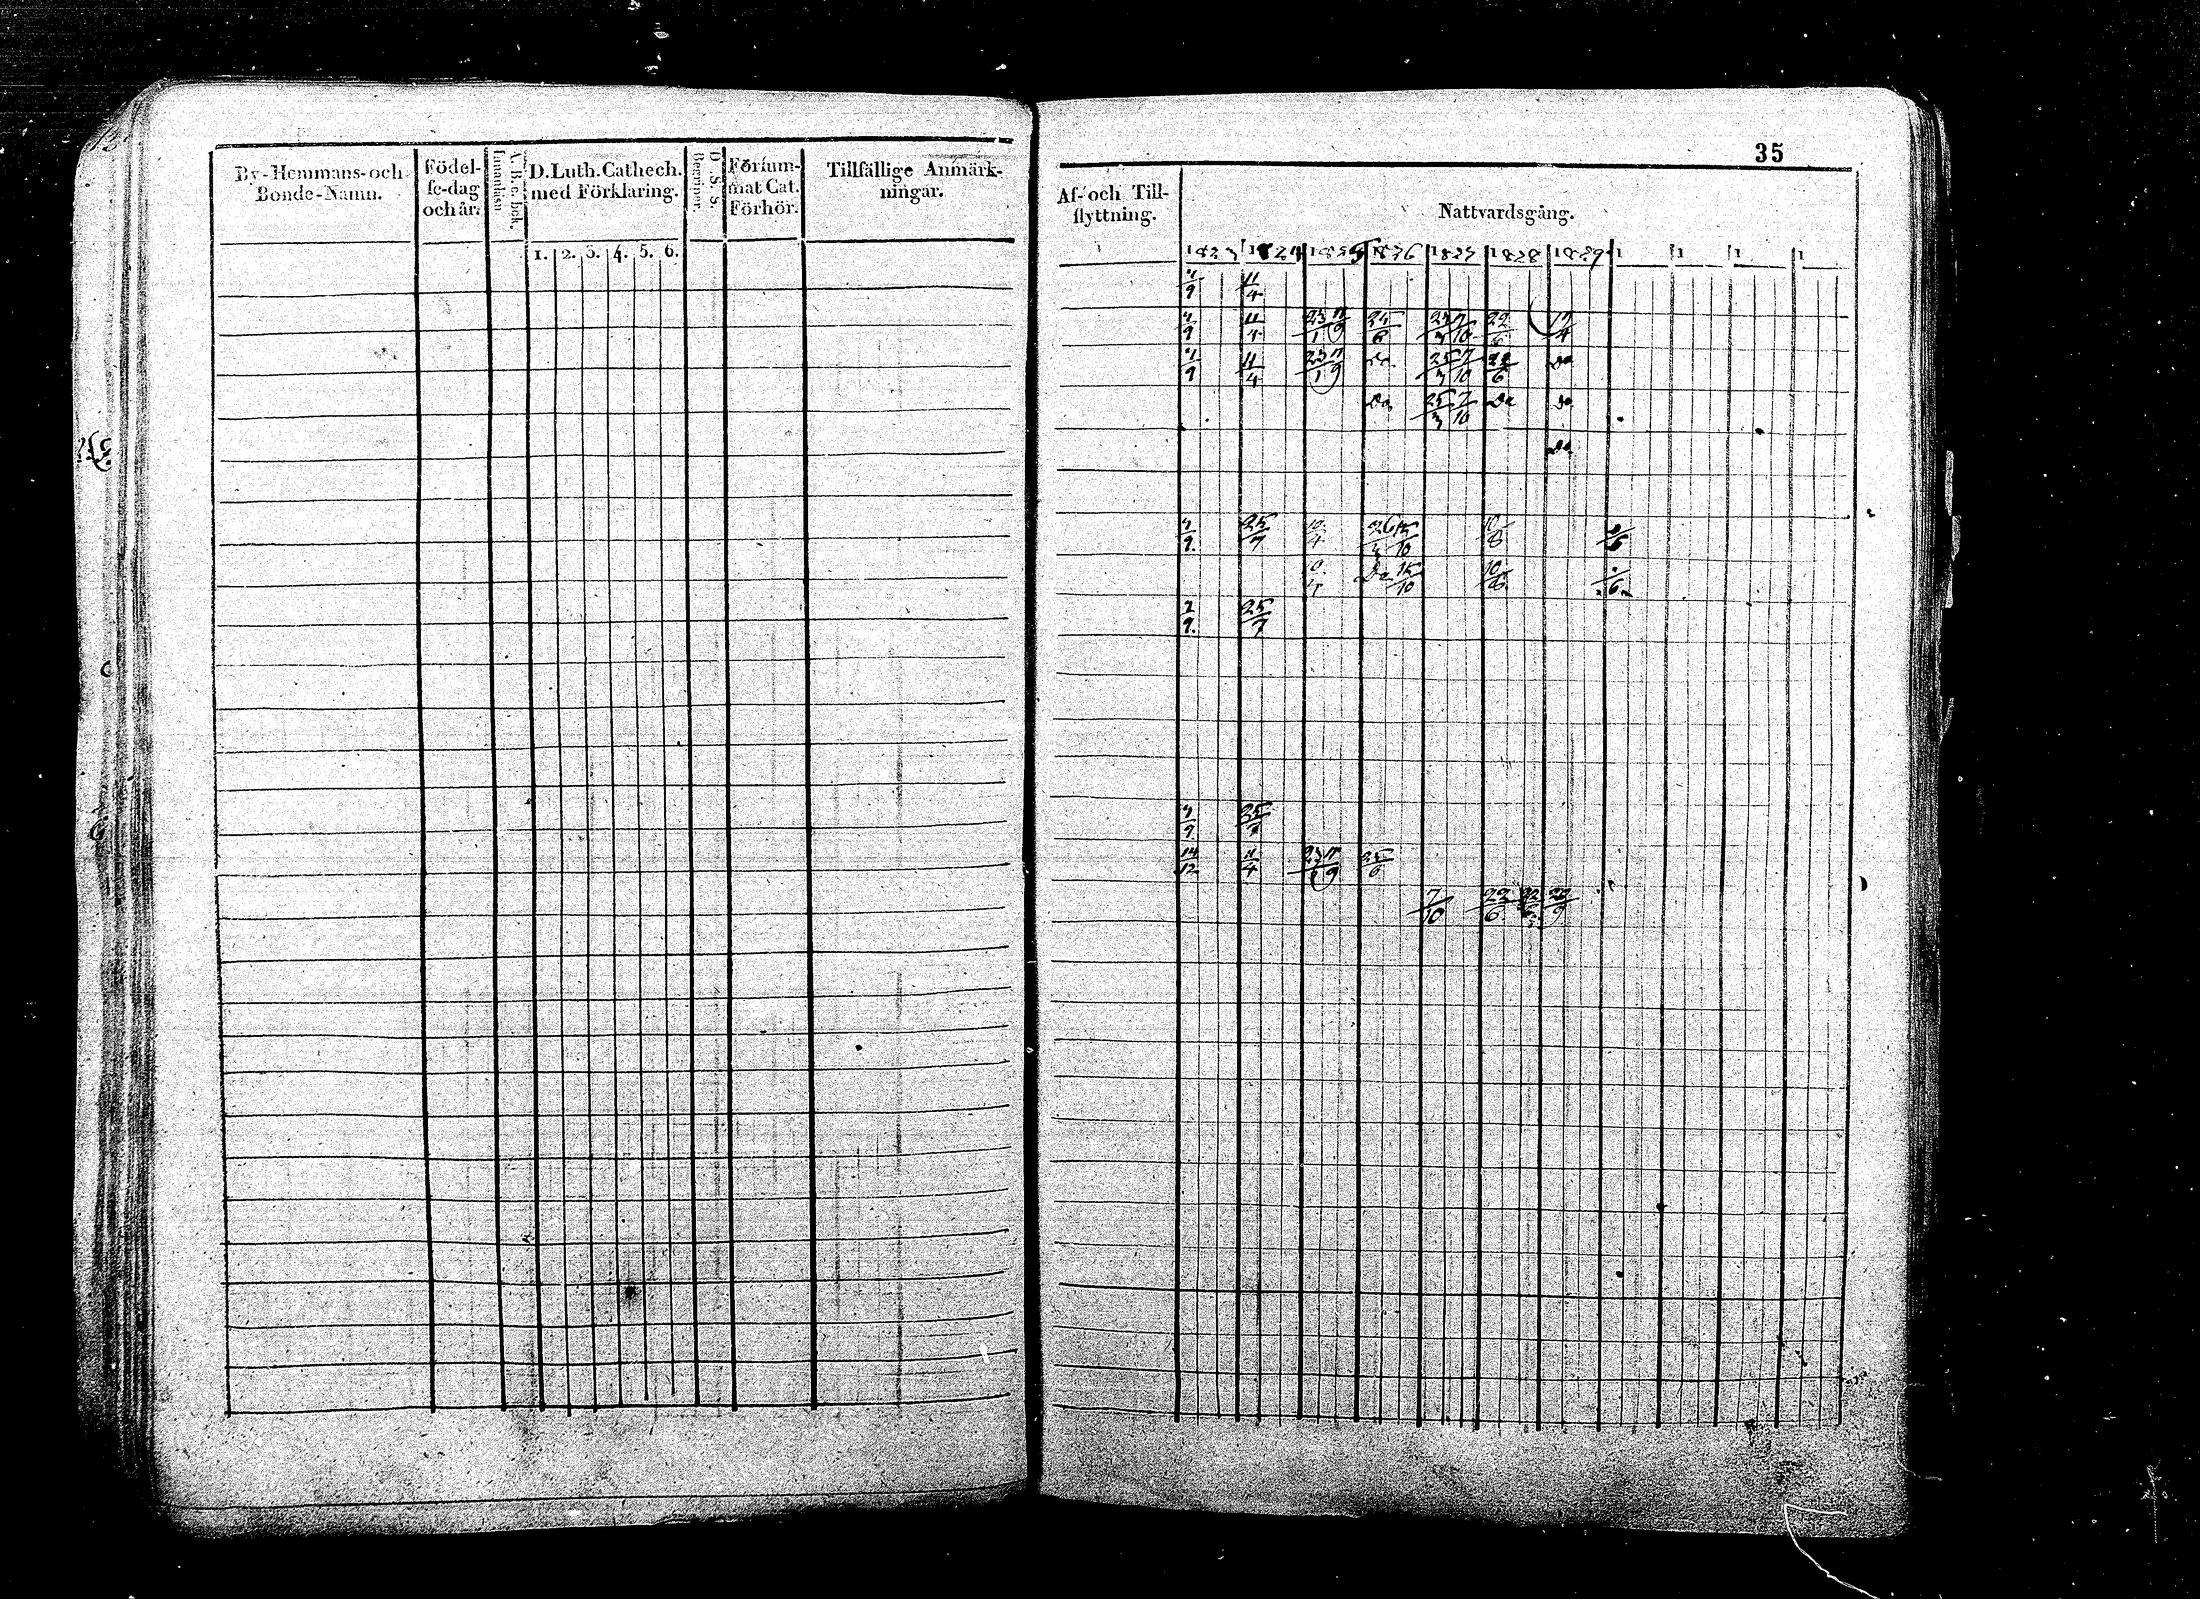 By-Hemmans-och
Bonde-Namn.
Födel-
se-dag
och år.
A.B.c.bok.
Innanläsn
D. Luth. Cathech.
med Förklaring.
1. 2. 3. 4. 5. 6.
D. S. S.
Begriper.
Försum-
mat Cat.
Förhör.
Tillfällige Anmärk-
ningar.
35
Af- och Till-
flyttning.
Nattvardsgång.
1823 1824 1825 1826 1827 1828 1829 1 1 1 1
7/9 11/4
7/9 11/4 23/1 11/9 24/6 25/3 7/10 22/6
7/9 11/4 23/1 11/9 Do 25/3 7/10 22/6 Do
Do 25/3 7/10 Do Do
Do
7/9. 25/7 10/4 26/3 15/10
Do 15/10
7/9. 25/7
7/9. 25/7
14/12 11/4 23/1 11/9 25/6
7/10 22/6 28/9